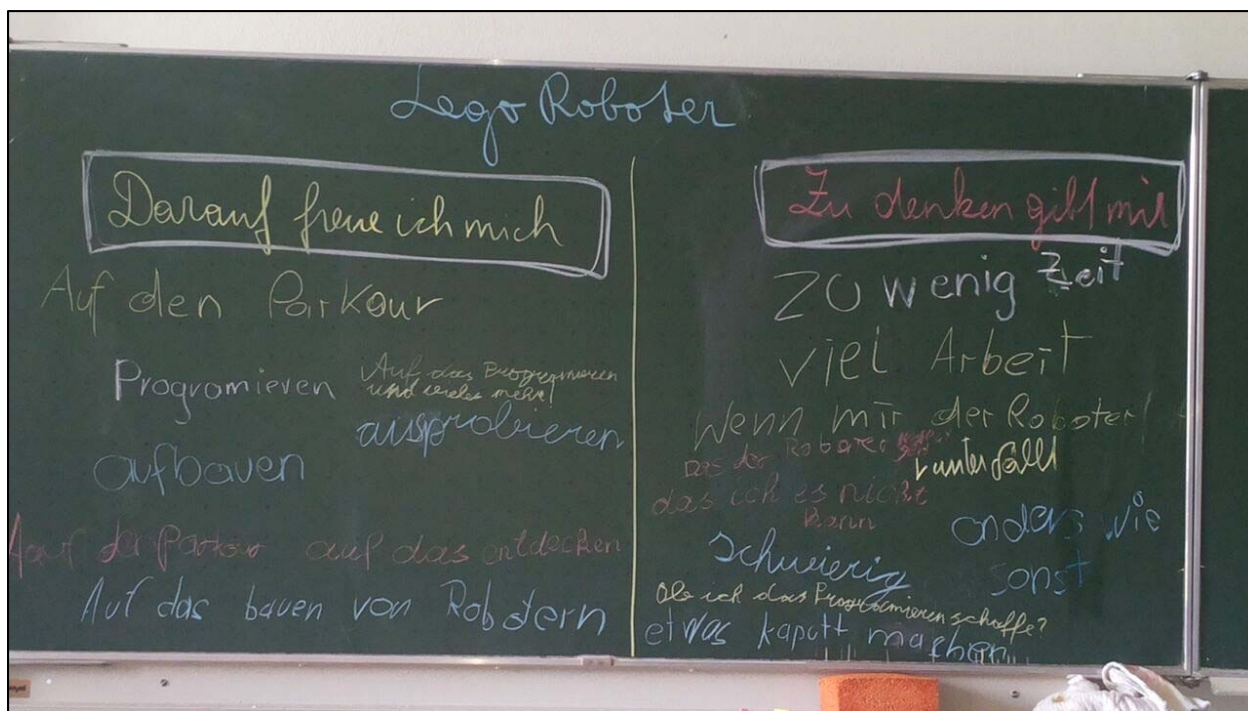 Lego Roboter
Darauf freue ich mich
Auf den Parkour
Programieren
Auf das Programmieren
und vieles mehr!
ausprobieren
aufbauen
auf das entdecken
Auf das bauen von Robotern
Zu denken gibt mir
zu wenig Zeit
viel Arbeit
Wenn mir der Roboter
runterfällt
Das der Roboter
das ich es nicht
kann
anders wie
sonst
schwierig
Ob ich das Programieren schaffe?
etwas kaputt machen